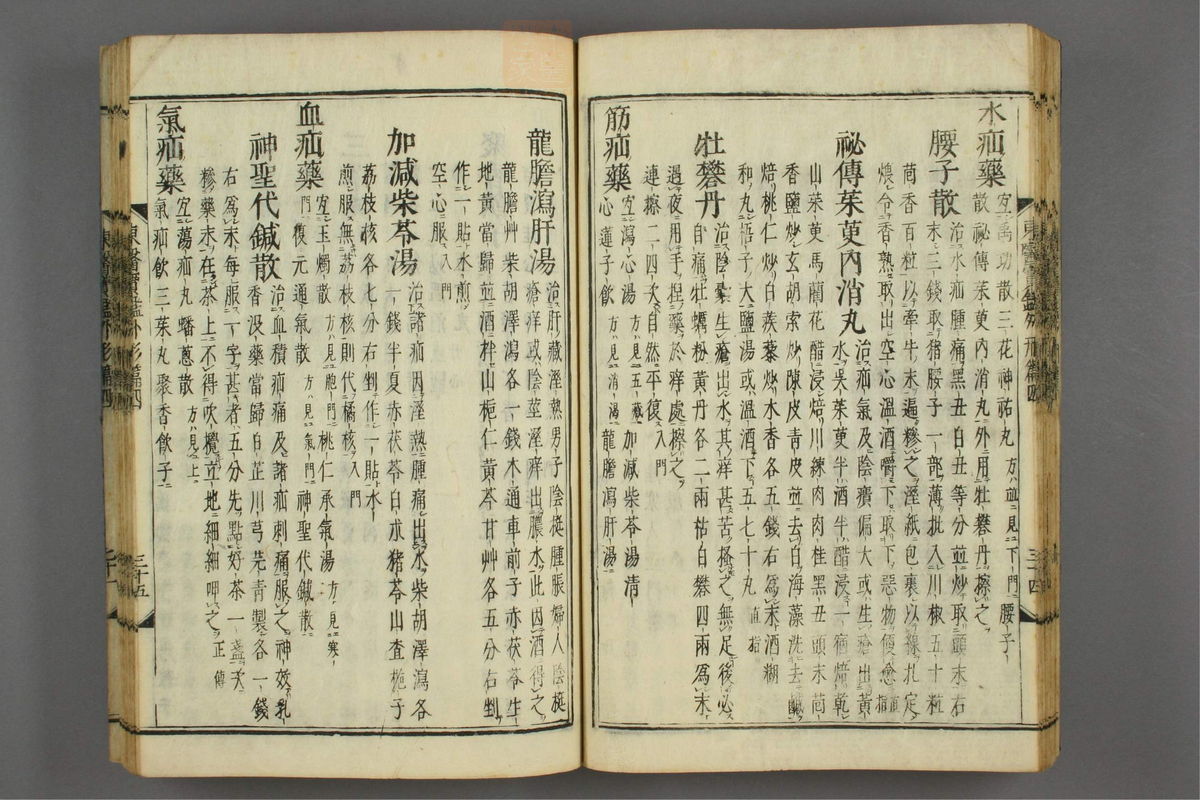 水疝藥 宜禹功散三花神祐丸方並見下門腰子
散秘傳茱萸內消丸外用牡礬丹擦之
腰子散 治水疝腫痛黑丑白丑等分並炒取頭末右
三錢取猪腰子一部薄批入川椒五十粒
茴香百粒以牽牛末遍糝之溼紙包裹以線扎定
煨令香熟取出空心溫酒嚼下取下惡物便愈直指
秘傳茱萸內消丸 治疝氣及陰㿗偏大或生瘡出黃
水吳茱萸半酒半醋浸一宿焙乾
山茱萸馬藺花醋浸焙川練肉肉桂黑丑頭末茴
香鹽炒玄胡索炒陳皮青皮並去白海藻洗去醎
焙桃仁炒白蒺藜炒木香各五錢右爲末酒糊
和丸梧子大鹽湯或溫酒下五七十丸直指
牡礬丹 治陰囊生瘡出水其痒甚苦搔之無足後必
自痛牡蠣粉黃丹各二兩枯白礬四兩爲末
遇夜用手捏藥於痒處擦之
連擦二四次自然平復入門
筋疝藥 宜瀉心湯方見五藏加減柴苓湯清
心蓮子飲方見消渴龍膽瀉肝湯
東醫寶鑑外形篇四 三十四
龍膽瀉肝湯 治肝藏溼熱男子陰梃腫脹婦人陰梃
瘡痒或陰莖溼痒出膿水此因酒得之
龍膽艸柴胡澤瀉各一錢木通車前子赤茯苓生
地黃當歸並酒拌山梔仁黃芩甘艸各五分右剉
作一貼水煎
空心服入門
加減柴苓湯 治諸疝因溼熱腫痛出水柴胡澤瀉各
一錢半夏赤茯苓白朮猪苓山査梔子
荔枝核各七分右剉作一貼水
煎服無荔枝核則代橘核入門
血疝藥 宜玉燭散方見胞門桃仁承氣湯方見寒
門復元通氣散方見氣門神聖代鍼散
神聖代鍼散 治血積疝痛及諸疝刺痛服之神效乳
香沒藥當歸白芷川芎芫青製各一錢
右爲末每服一字甚者五分先點好茶一盞次
糝藥末在茶上不得吹攪立地細細呷之正傳
氣疝藥 宜蕩疝丸蟠葱散方見上
氣疝飲三茱丸聚香飲子
東醫寶鑑外形篇四 三十五